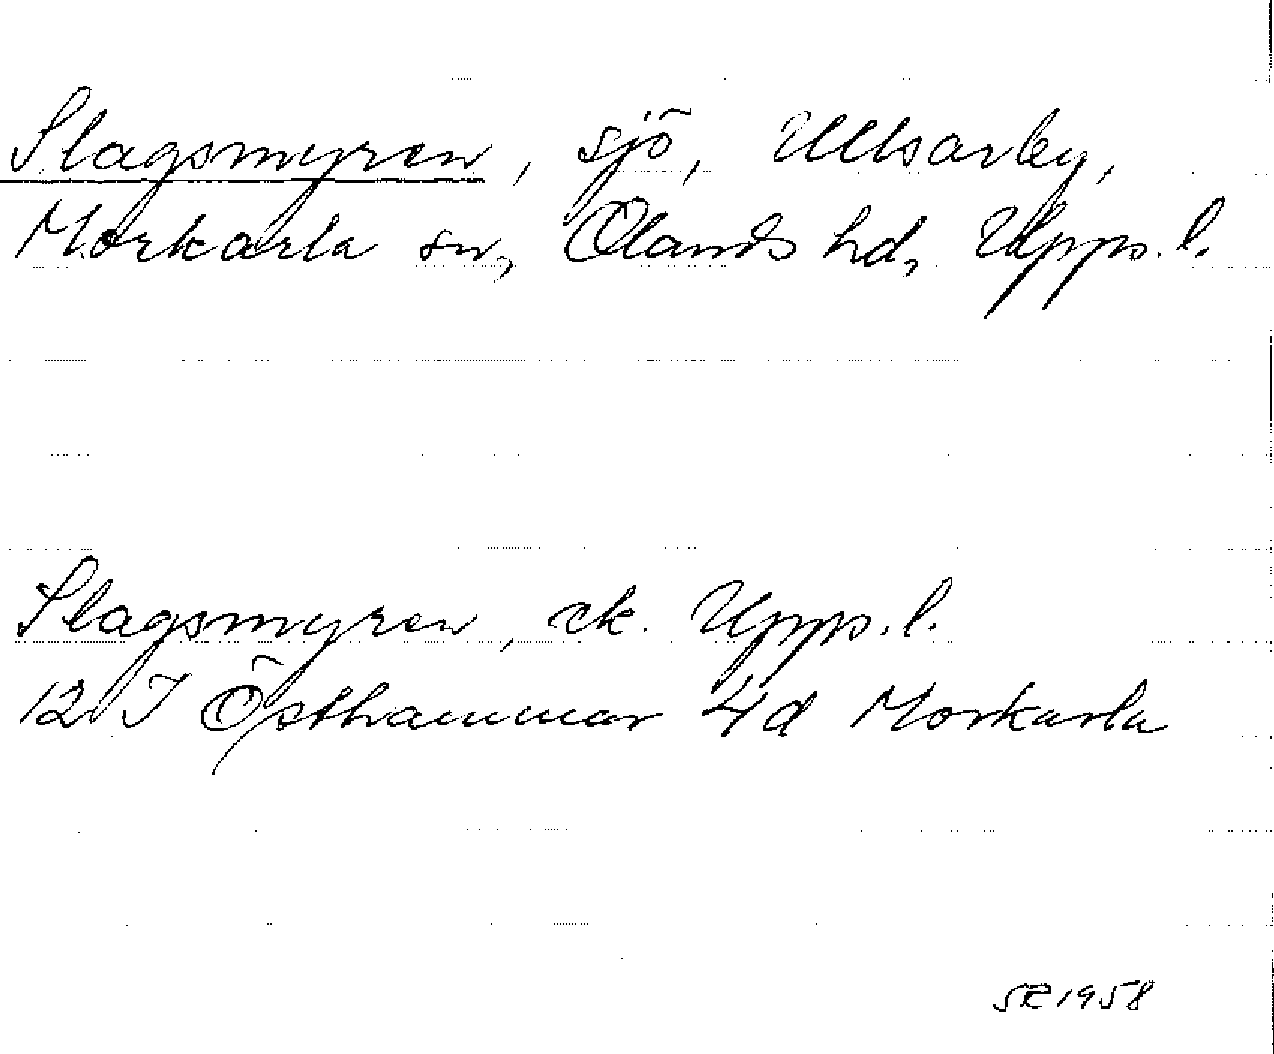 Slagsmyren, sjö, Ullsarby,
Morkarla sn, Olands hd, Upps. l.
Slagsmyren, ek. Upps. l.
12 I Östhammar 4d Morkarla
SR 1958